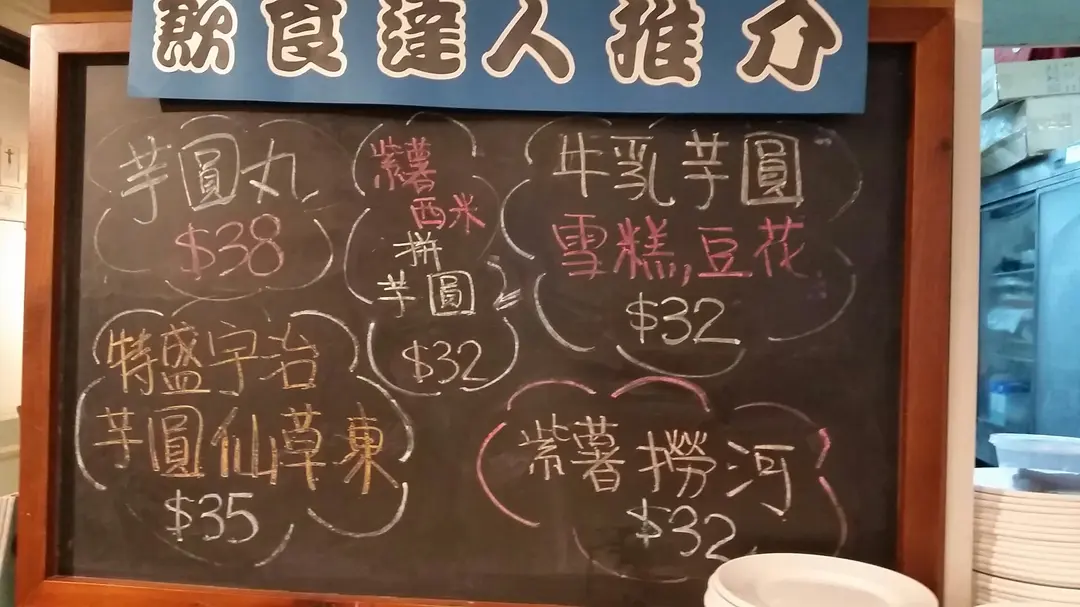 飲食達人推介
芋圓丸
$38
紫薯
西米
拼
芋圓
$32
牛乳芋圓
雪糕,豆花
$32
特盛宇治
芋圓仙草東
$35
紫薯撈河
$32